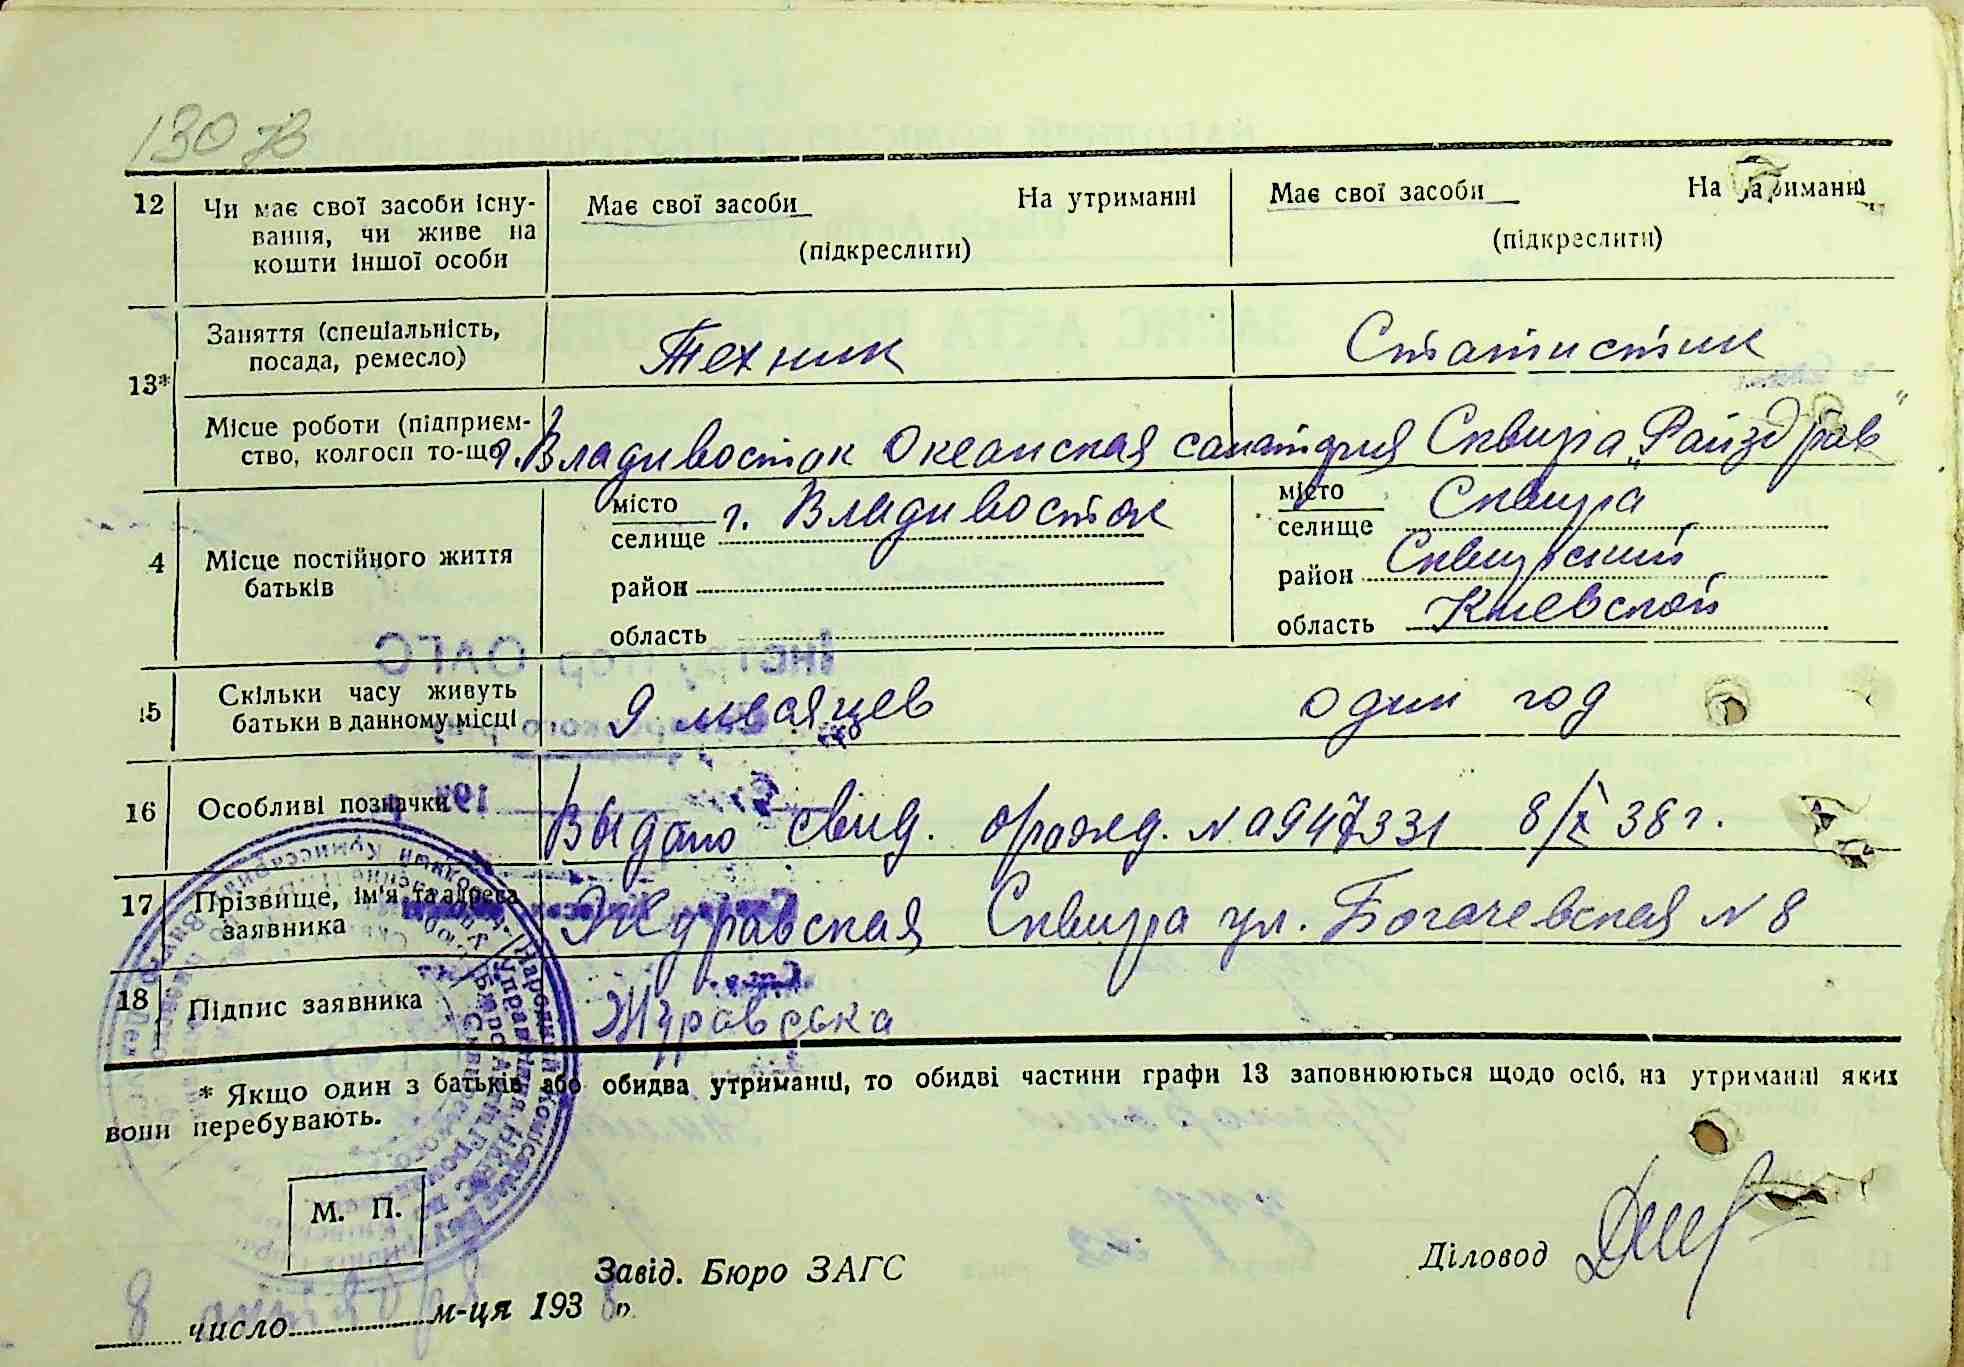 130 зв
12 Чи має свої засоби існу- Має свої засоби На утриманні Має свої засоби На утриманні
вання, чи живе на (підкреслити) (підкреслити)
кошти іншої особи
13* Заняття (спеціальність, Техник Статистик
посада, ремесло)
Місце роботи (підприєм- г. Владивосток Океанская санатория Сквира „Райздрав"
ство, колгосп то-що
місто г. Владивосток місто Сквира
селище селище
4 Місце постійного життя район район Сквирский
батьків область область Киевской
15 Скільки часу живуть 9 месяцев один год
батьки в данному місці
16 Особливі позначки Выдано свид. о рожд. № 0947331 8/X 38 г.
17 Прізвище, ім'я та адреса Журавская Сквира ул. Богачевская № 8
заявника
18 Підпис заявника Журавська
* Якщо один з батьків або обидва утриманці, то обидві частини графи 13 заповнюються щодо осіб, на утриманні яких
вони перебувають.
М. П.
Завід. Бюро ЗАГС Діловод
8 число м-ця 1938 р.